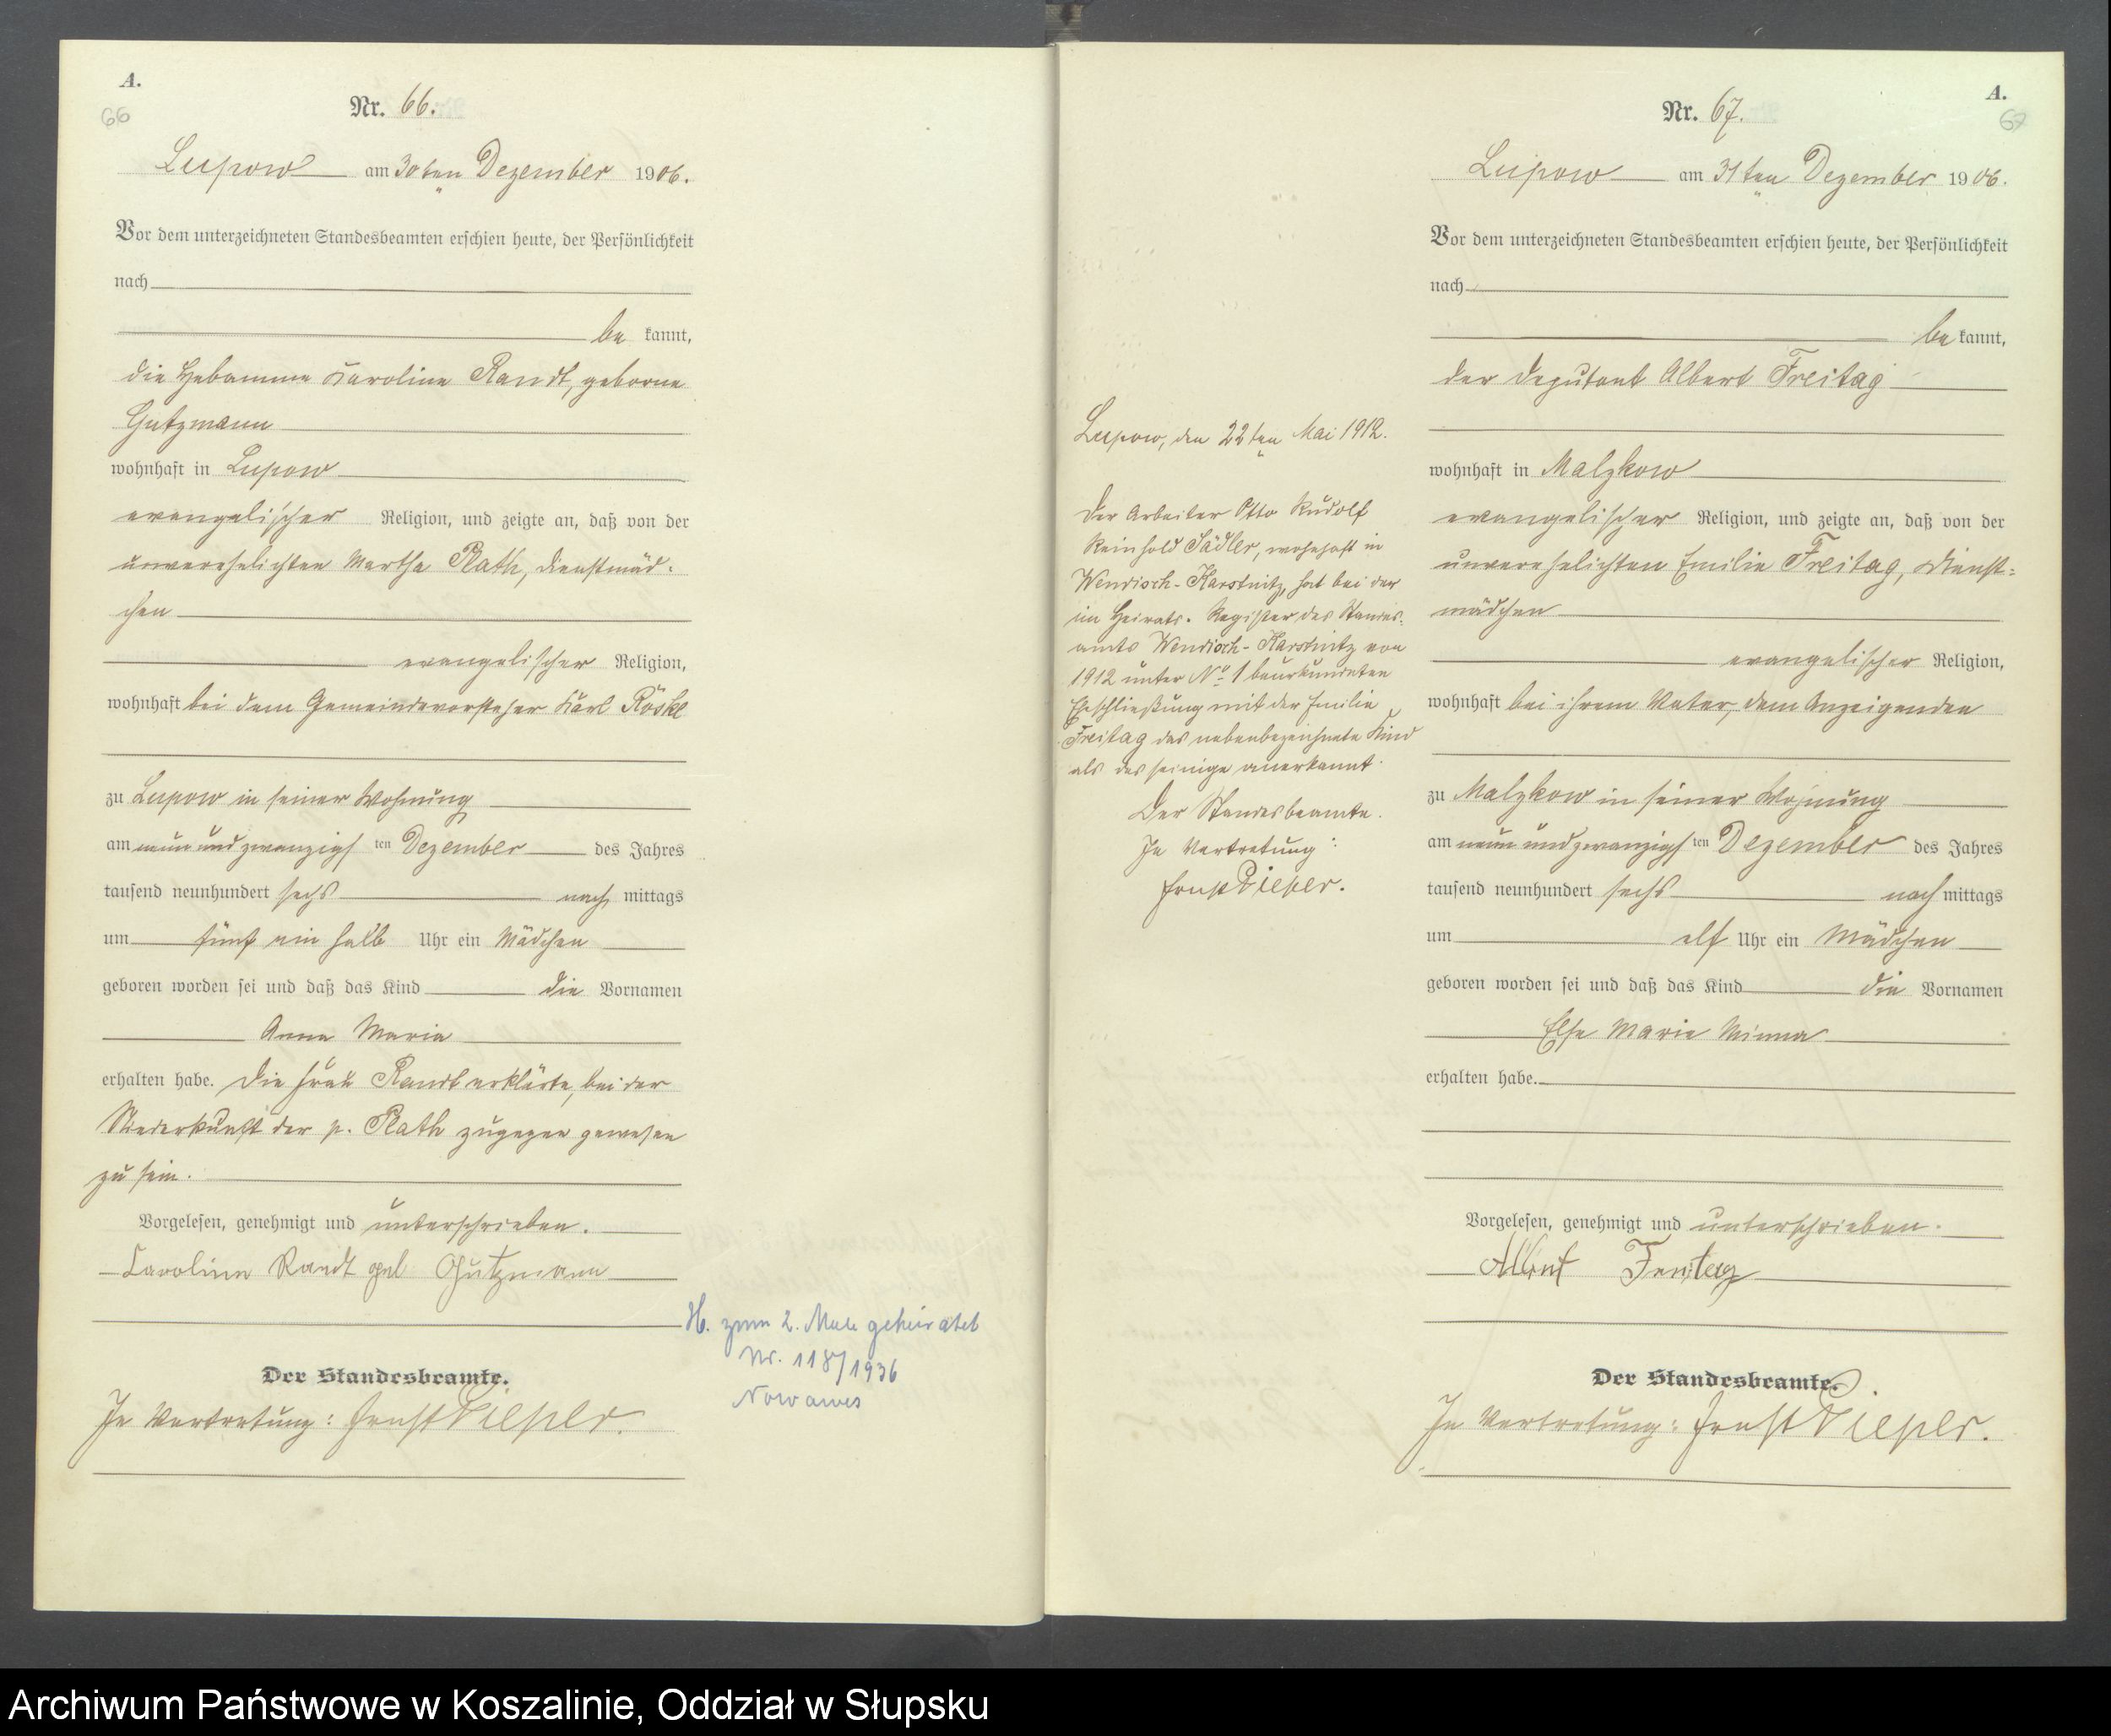 A.
66
Nr. 66.
Lupow am 30ten Dezember 1906.
Vor dem unterzeichneten Standesbeamten erschien heute, der Persönlichkeit
nach
be kannt,
die Hebamme Karoline Randt, geborne
Gutzmann
wohnhaft in Lupow
evangelischer Religion, und zeigte an, daß von der
unverehelichten Martha Rath, Dienstmäd-
chen
evangelischer Religion,
wohnhaft bei dem Gemeindevorsteher Karl Röske
zu Lupow in seiner Wohnung
am neun und zwanzigs ten Dezember des Jahres
tausend neunhundert sechs nach mittags
um fünf ein halb Uhr ein Mädchen
geboren worden sei und daß das Kind die Vornamen
Anna Maria
erhalten habe. Die Frau Randt erklärte, bei der
Niederkunft der p. Rath zugegen gewesen
zu sein.
Vorgelesen, genehmigt und unterschrieben.
Caroline Randt geb Gutzmann
Der Standesbeamte.
In Vertretung: Ernst Pieper.
H. zum 2. Male geheiratet
Nr. 118/1936
Nowawes
Lupow, den 22ten Mai 1912.
Der Arbeiter Otto Rudolf
Reinhold Sädler, wohnhaft in
Wendisch-Karstnitz, hat bei der
im Heirats-Register des Standes-
amts Wendisch-Karstnitz von
1912 unter No 1 beurkundeten
Eheschließung mit der Emilie
Freitag das nebenbezeichnete Kind
als das seinige anerkannt.
Der Standesbeamte.
In Vertretung:
Ernst Pieper.
A.
67
Nr. 67.
Lupow am 31ten Dezember 1906.
Vor dem unterzeichneten Standesbeamten erschien heute, der Persönlichkeit
nach
be kannt,
der Deputant Albert Freitag
wohnhaft in Malzkow
evangelischer Religion, und zeigte an, daß von der
unverehelichten Emilie Freitag, Dienst-
mädchen
evangelischer Religion,
wohnhaft bei ihrem Vater, dem Anzeigenden
zu Malzkow in seiner Wohnung
am neun und zwanzigs ten Dezember des Jahres
tausend neunhundert sechs nach mittags
um elf Uhr ein Mädchen
geboren worden sei und daß das Kind die Vornamen
Else Marie Minna
erhalten habe.
Vorgelesen, genehmigt und unterschrieben.
Albert Freitag
Der Standesbeamte.
In Vertretung: Ernst Pieper.
Archiwum Państwowe w Koszalinie, Oddział w Słupsku